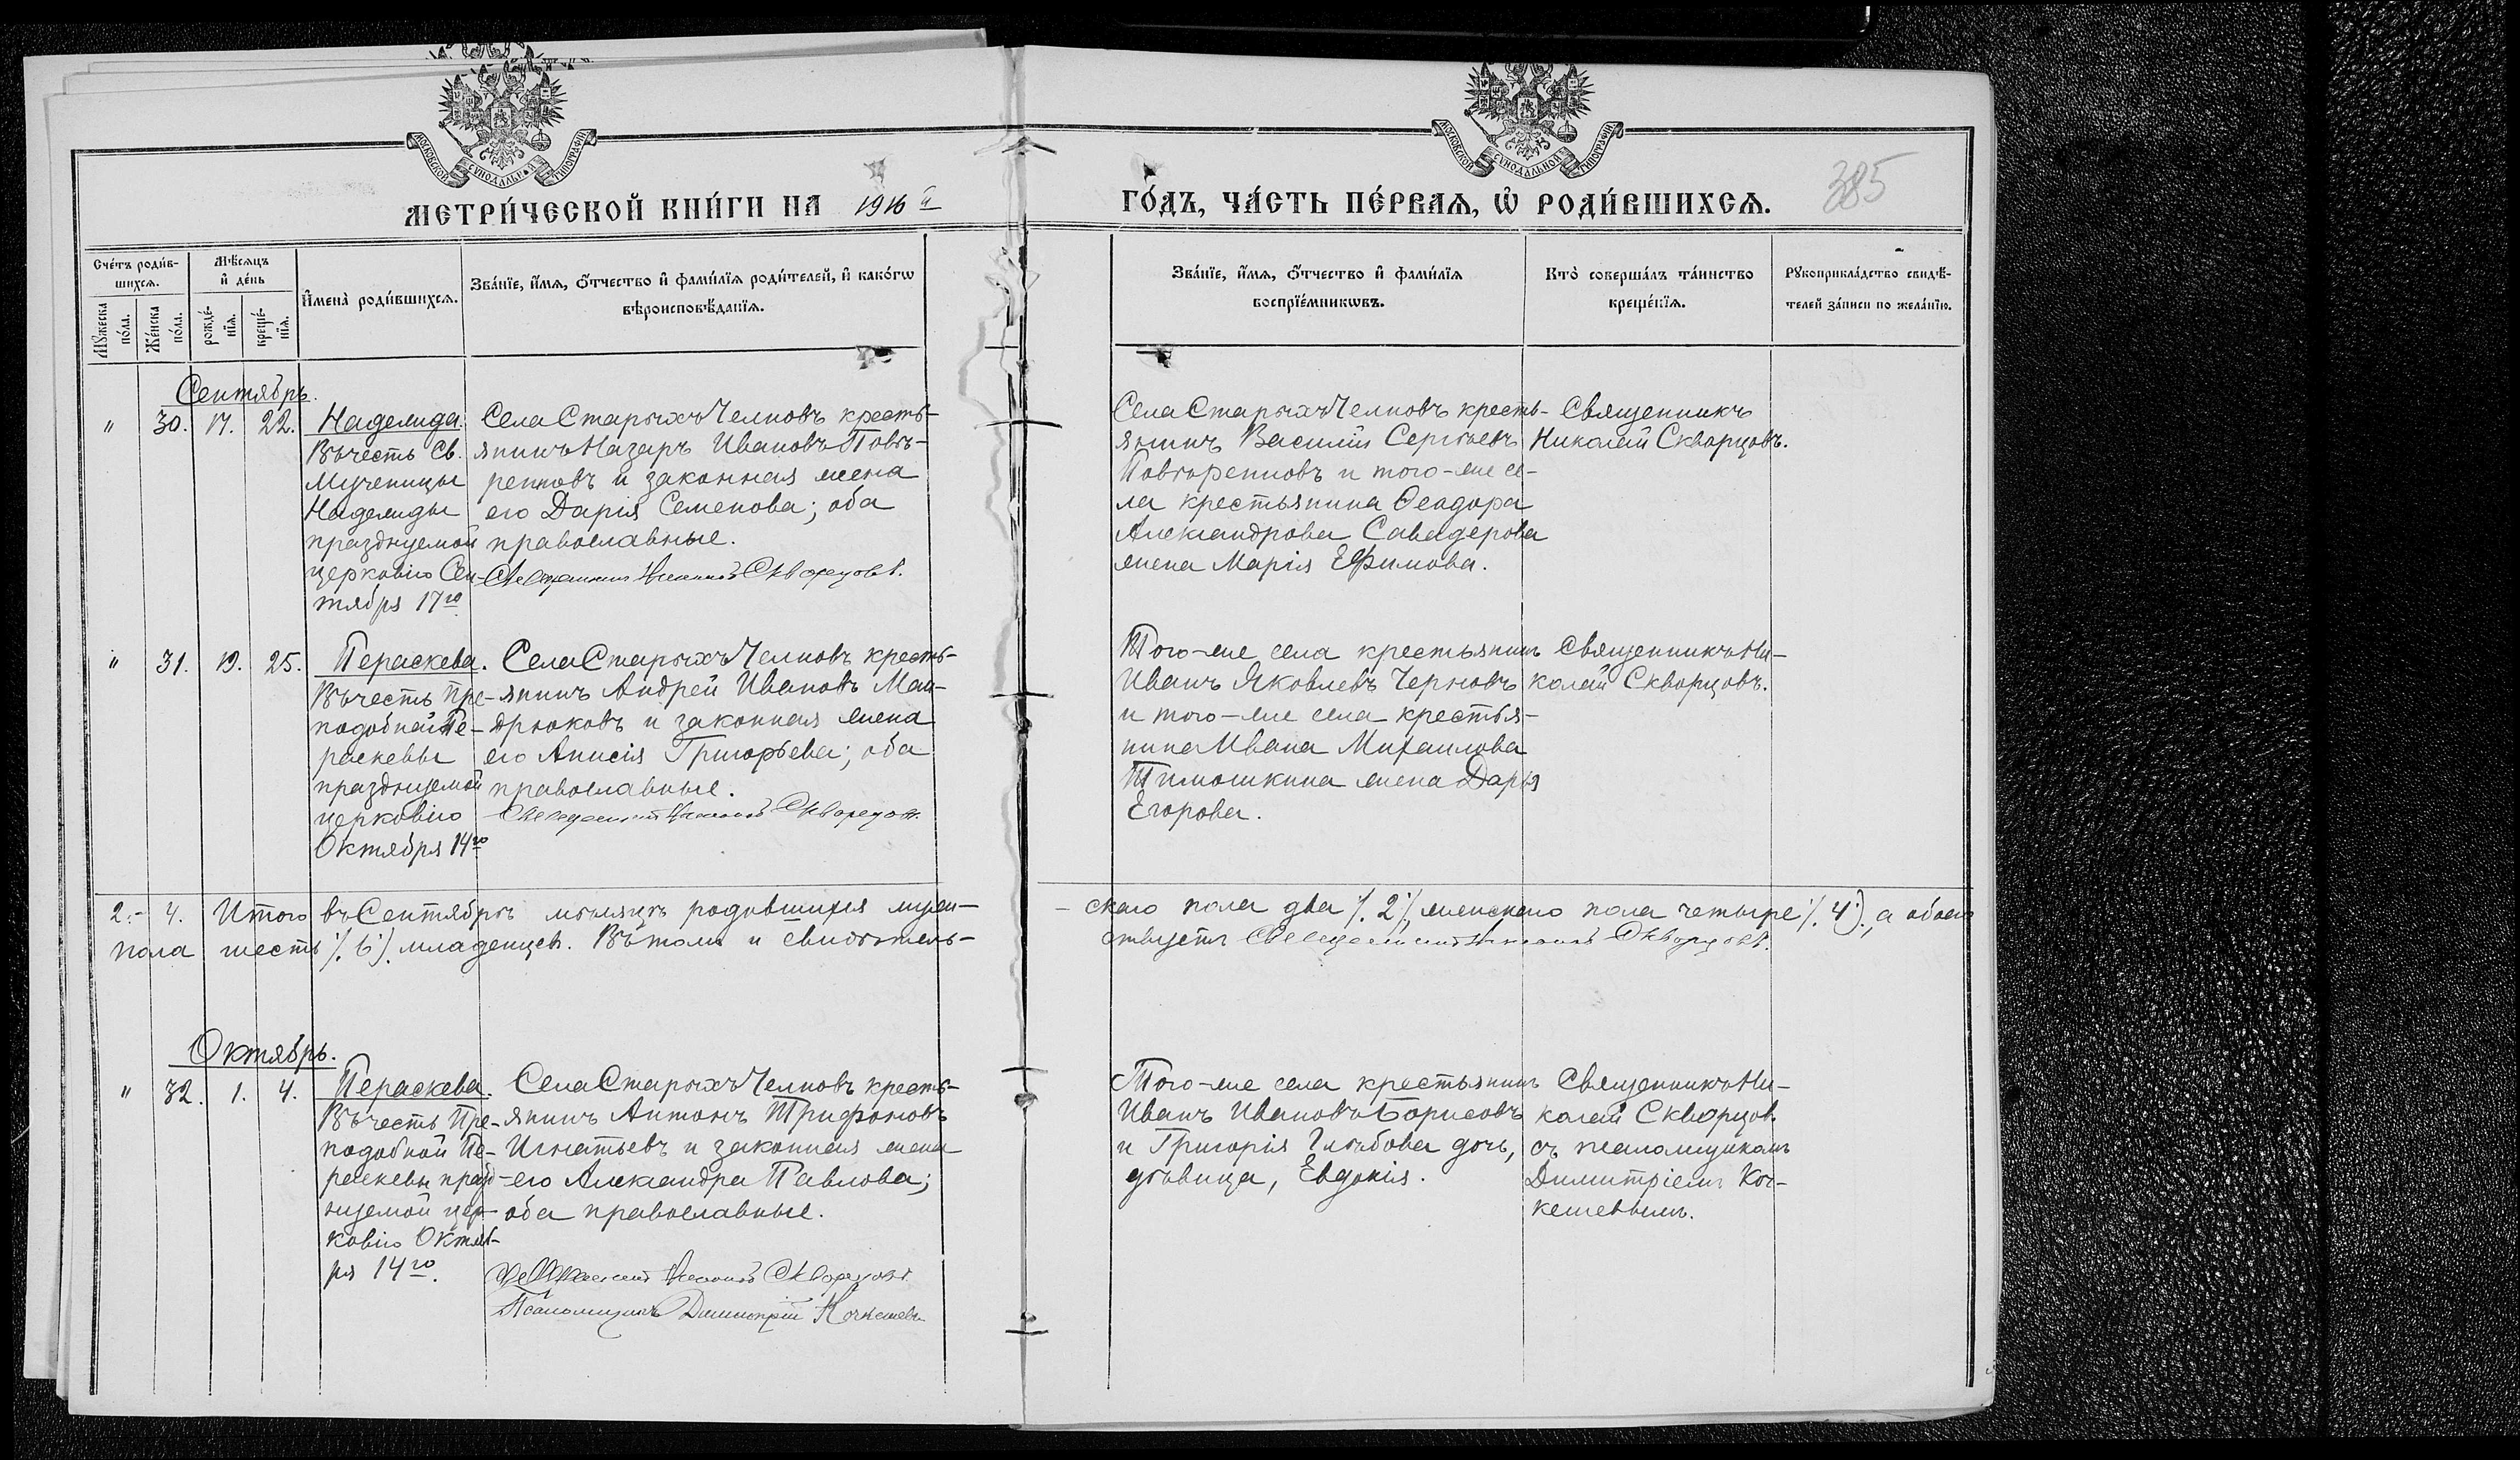 МОСКОВСКОЙ СѴНОДАЛЬНОЙ ТИПОГРАФІИ
МОСКОВСКОЙ СѴНОДАЛЬНОЙ ТИПОГРАФІИ
385
МЕТРИ́ЧЕСКОЙ КНИ́ГИ НА 1916й ГО́ДЪ, ЧА́СТЬ ПЕ́РВАѦ, Ѡ҆ РОДИ́ВШИХСѦ.
Сче́тъ роди́в-
шихсѧ.
Мꙋ́жеска по́ла.
Же́нска по́ла.
Мѣ́сѧцъ
и҆ де́нь
рожде́-
нїѧ.
креще́-
нїѧ.
И҆мена̀ роди́вшихсѧ.
Зва́нїе, и҆́мѧ, ѻ҆́тчество и҆ фами́лїѧ роди́телей, и҆ како́гѡ
вѣроисповѣ́данїѧ.
Зва́нїе, и҆́мѧ, ѻ҆́тчество и҆ фами́лїѧ
воспрїе́мникѡвъ.
Кто̀ соверша́лъ та́инство
креще́нїѧ.
Рꙋкоприкла́дство свидѣ́-
телей за́писи по жела́нїю.
Сентябрь.
" 30. 17. 22.
Надежда.
Въ честь Св.
Мученицы
Надежды
празднуемой
церковію Сен-
тября 17го
Села Старыхъ Челновъ кресть-
янинъ Назаръ Ивановъ Повѣ-
ренновъ и законная жена
его Дарія Семенова; оба
православные.
Священникъ Николай Скворцовъ.
Села Старыхъ Челновъ кресть-
янинъ Василій Сергѣевъ
и того-же се-
ла крестьянина Ѳеодора
Александрова Савадерова
жена Марія Ефимова.
Священникъ
Николай Скворцовъ.
" 31. 19. 25.
Пераскева.
Въ честь Пре-
подобной Пе-
раскевы
празднуемой
церковію
Октября 14го
Села Старыхъ Челновъ кресть-
янинъ Андрей Ивановъ Ман-
дрюковъ и законная жена
его Анисія Григорьева; оба
православные.
Священникъ Николай Скворцовъ.
Того-же села крестьянинъ
Иванъ Яковлевъ Черновъ
и того-же села крестья-
нина Ивана Михаилова
Тимошкина жена Дарья
Егорова.
Священникъ Ни-
колай Скворцовъ.
2.- 4. Итого въ Сентябрѣ мѣсяцѣ родившихся муж-
скаго пола два /.2./, женскаго пола четыре /.4./, а обоего
пола шесть /.6./ младенцевъ. Въ томъ и свидѣтель-
ствуетъ Священникъ Николай Скворцовъ.
Октябрь.
" 32. 1. 4.
Пераскева.
Въ честь Пре-
подобной Пе-
раскевы празд-
нуемой цер-
ковію Октяб-
ря 14го.
Села Старыхъ Челновъ кресть-
янинъ Антонъ Трифоновъ
Игнатьевъ и законная жена
его Александра Павлова;
оба православные.
Священникъ Николай Скворцовъ.
Псаломщикъ Димитрій Кочкешевъ
Того-же села крестьянинъ
Иванъ Ивановъ Борисовъ
и Григорія Глѣбова дочь,
дѣвица, Евдокія.
Священникъ Ни-
колай Скворцовъ
съ псаломщикомъ
Димитріемъ Коч-
кешевымъ.